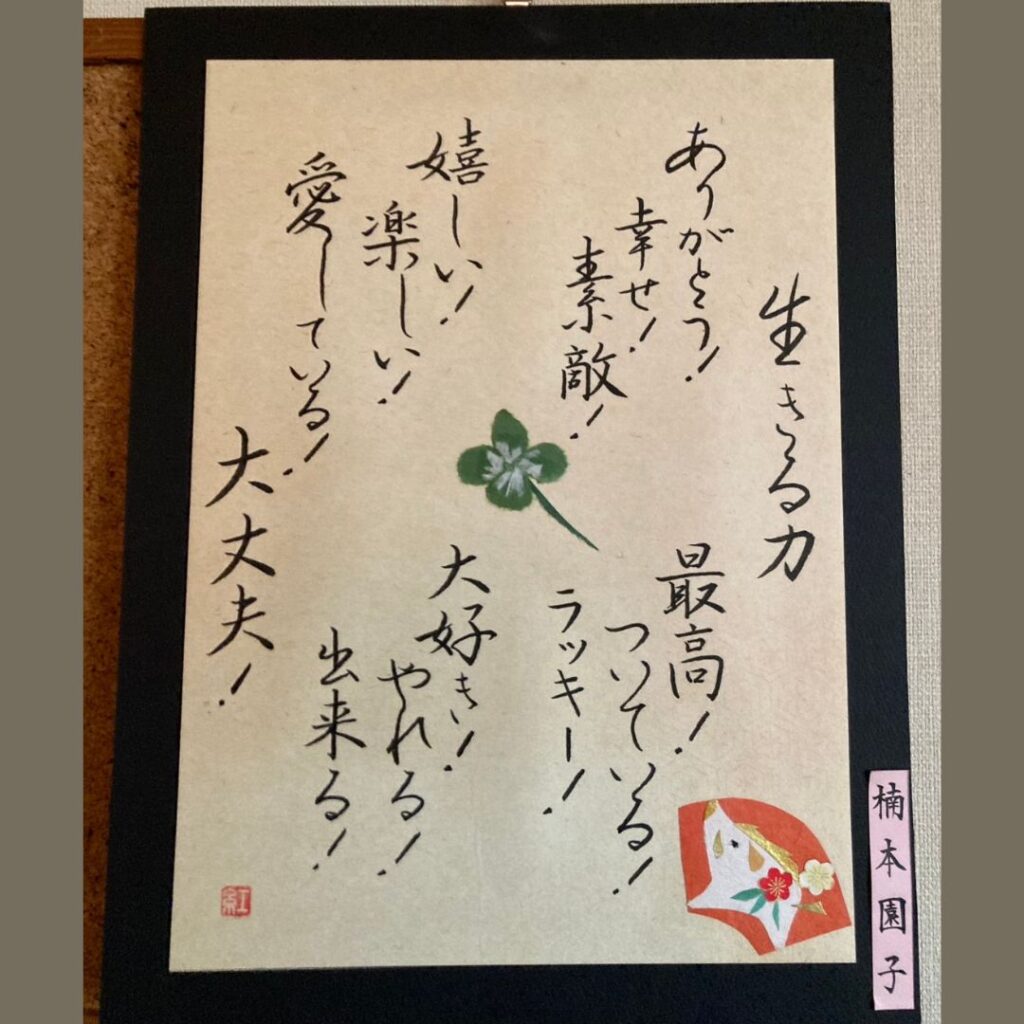 生きる力
ありがとう!
幸せ!
素敵!
最高!
ついている!
ラッキー!
嬉しい!
楽しい!
愛している!
大好き!
やれる!
出来る!
大丈夫!
楠本園子